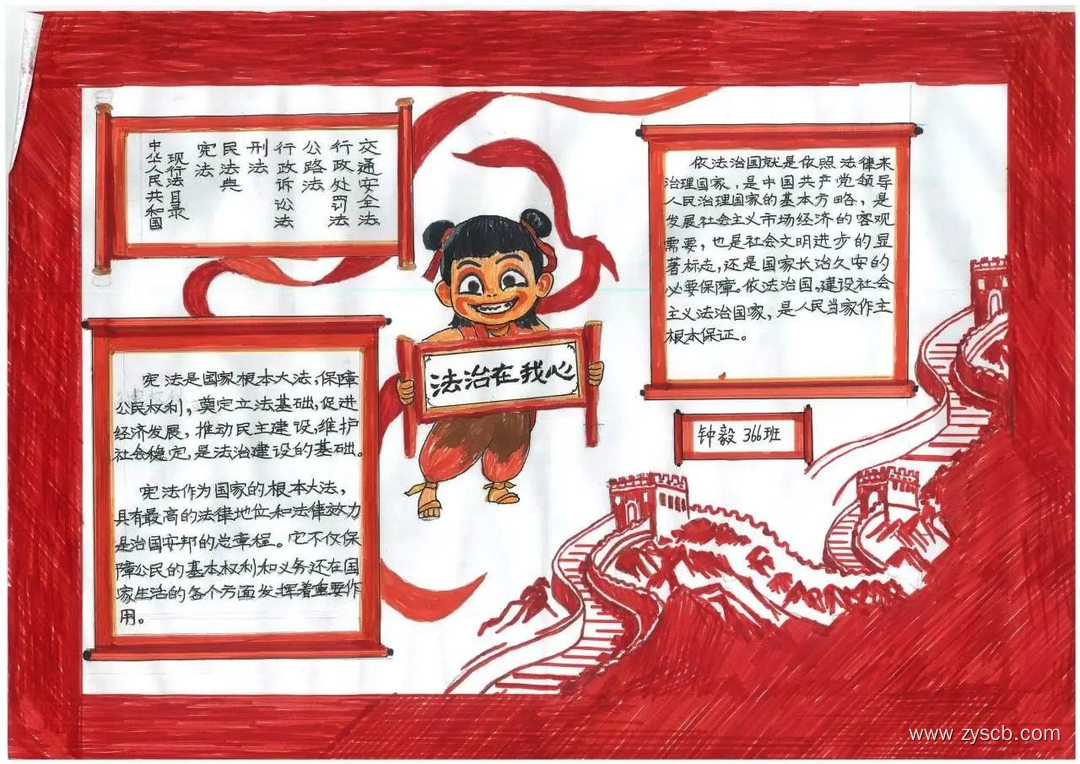 中华人民共和国
现行法目录
宪法
民法典
刑法
行政诉讼法
公路法
行政处罚法
交通安全法
依法治国就是依照法律来
治理国家，是中国共产党领导
人民治理国家的基本方略，是
发展社会主义市场经济的客观
需要，也是社会文明进步的显
著标志，还是国家长治久安的
必要保障。依法治国，建设社会
主义法治国家，是人民当家作主
根本保证。
法治在我心
宪法是国家根本大法，保障
公民权利，奠定立法基础，促进
经济发展，推动民主建设，维护
社会稳定，是法治建设的基础。
宪法作为国家的根本大法，
具有最高的法律地位和法律效力
是治国安邦的总章程。它不仅保
障公民的基本权利和义务还在国
家生活的各个方面发挥着重要作
用。
钟毅 366班
www.zyscb.com